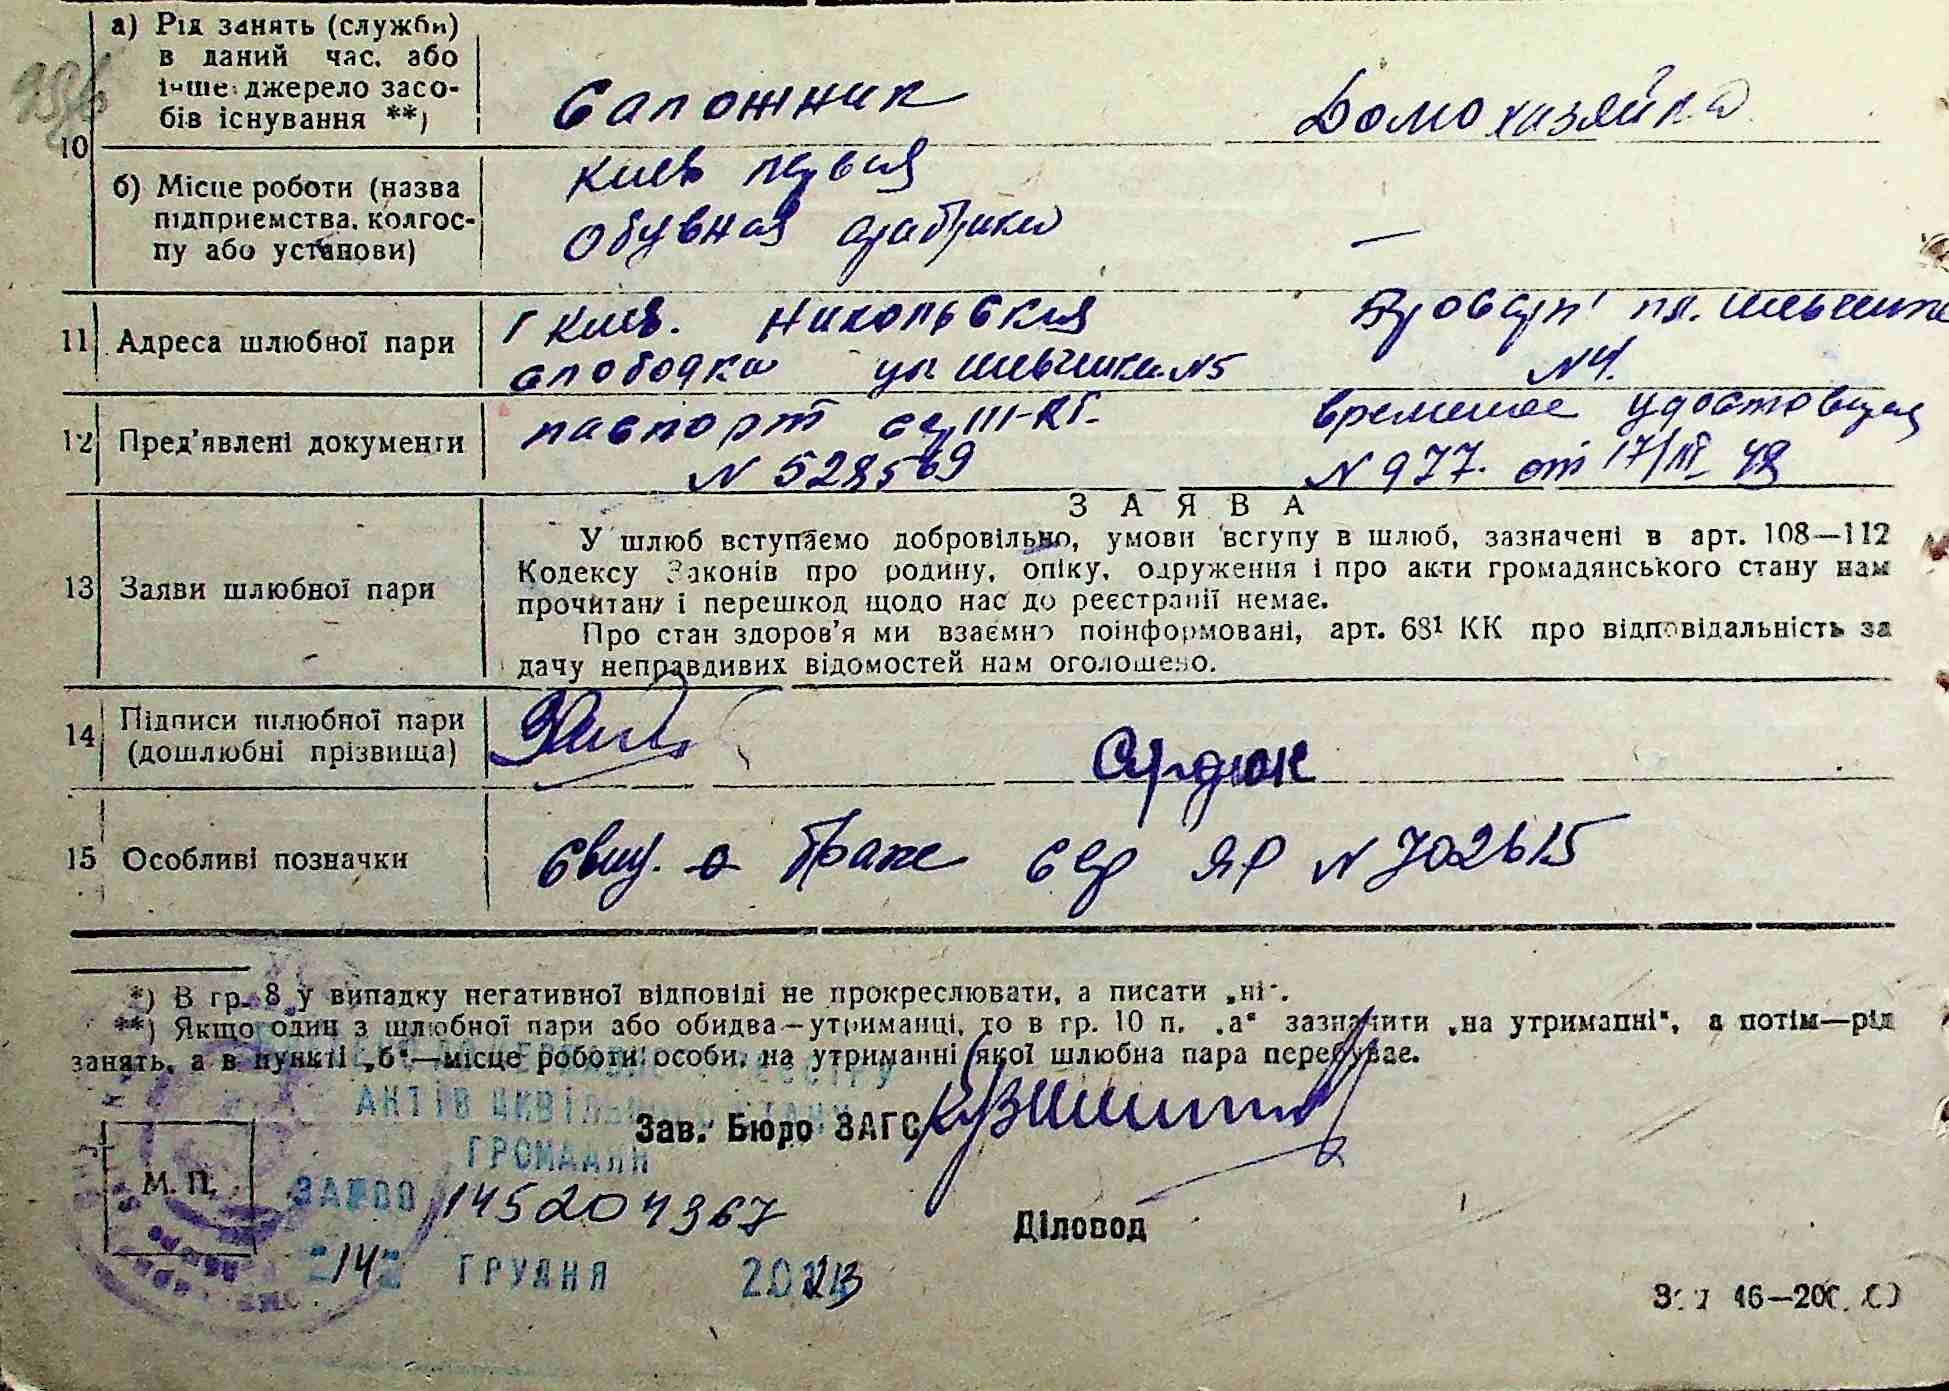 10
а) Рід занять (служби)
в даний час, або
інше джерело засо-
бів існування **)
Сапожник
Домохазяйка
б) Місце роботи (назва
підприємства, колгос-
пу або установи)
Киев первая
Обувная фабрика
—
11 Адреса шлюбної пари
г Киев. Никольская
слободка ул Шевченка №5
Бровары пл. Шевченко
№4.
12 Пред'явлені документи
паспорт сер III-КГ.
N 528569
временое удостоверен
N 977. от 17/III 48
13 Заяви шлюбної пари
ЗАЯВА
У шлюб вступаємо добровільно, умови вступу в шлюб, зазначені в арт. 108—112
Кодексу Законів про родину, опіку, одруження і про акти громадянського стану нам
прочитані і перешкод щодо нас до реєстрації немає.
Про стан здоров'я ми взаємно поінформовані, арт. 68¹ КК про відповідальність за
дачу неправдивих відомостей нам оголошено.
14 Підписи шлюбної пари
(дошлюбні прізвища)
Сердюк
15 Особливі позначки
Свид. о браке сер ЯР N 702615
*) В гр. 8 у випадку негативної відповіді не прокреслювати, а писати „ні".
**) Якщо один з шлюбної пари або обидва—утриманці, то в гр. 10 п. „а" зазначити „на утриманні", а потім—рід
занять, а в пункті „б"—місце роботи особи, на утриманні якої шлюбна пара перебуває.
АКТІВ ЦИВІЛЬНОГО СТАНУ
ГРОМАДЯН
Зав. Бюро ЗАГС
М. П.
145204967
Діловод
14 ГРУДНЯ 2023